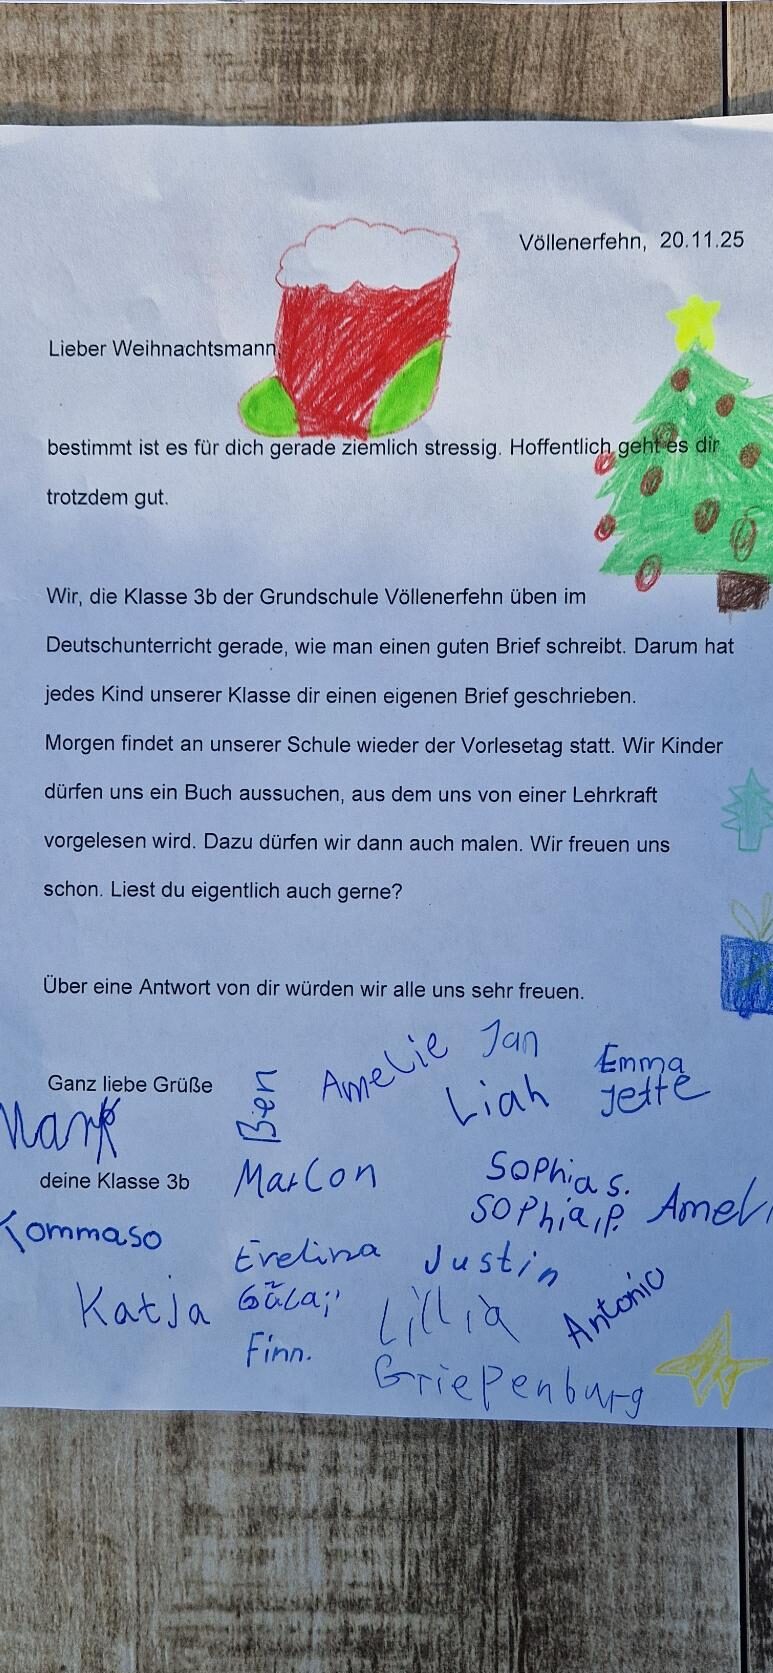 Völlenerfehn, 20.11.25
Lieber Weihnachtsmann,
bestimmt ist es für dich gerade ziemlich stressig. Hoffentlich geht es dir
trotzdem gut.
Wir, die Klasse 3b der Grundschule Völlenerfehn üben im
Deutschunterricht gerade, wie man einen guten Brief schreibt. Darum hat
jedes Kind unserer Klasse dir einen eigenen Brief geschrieben.
Morgen findet an unserer Schule wieder der Vorlesetag statt. Wir Kinder
dürfen uns ein Buch aussuchen, aus dem uns von einer Lehrkraft
vorgelesen wird. Dazu dürfen wir dann auch malen. Wir freuen uns
schon. Liest du eigentlich auch gerne?
Über eine Antwort von dir würden wir alle uns sehr freuen.
Ganz liebe Grüße
Ben
Amelie
Jan
Liah
Emma
Jette
deine Klasse 3b
Marlon
Sophia S.
Sophia P.
Ameli
Tommaso
Evelina
Justin
Katja
Lillia
Antonio
Finn.
Griepenburg